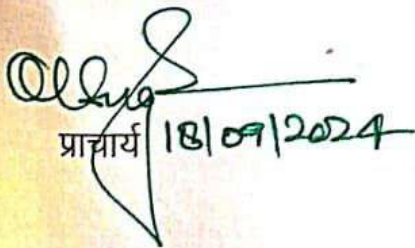 प्राचार्य 18/09/2024